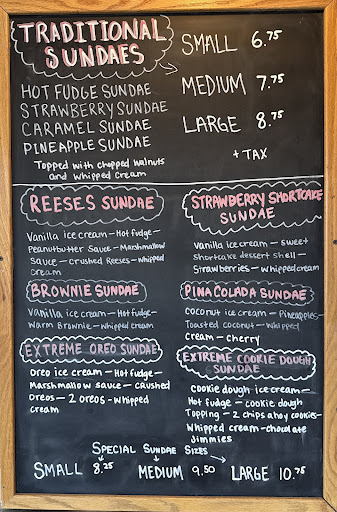 TRADITIONAL
SUNDAES
SMALL 6.75
HOT FUDGE SUNDAE
MEDIUM 7.75
STRAWBERRY SUNDAE
CARAMEL SUNDAE
LARGE 8.75
PINEAPPLE SUNDAE
+ TAX
Topped with chopped walnuts
and whipped cream
REESES SUNDAE
Vanilla ice cream - Hot fudge -
Peanutbutter Sauce - Marshmallow
Sauce - crushed Reeses - Whipped
cream
BROWNIE SUNDAE
Vanilla ice cream - Hot fudge -
Warm Brownie - Whipped cream
EXTREME OREO SUNDAE
Oreo ice cream - Hot fudge -
Marshmallow sauce - crushed
Oreos - 2 Oreos - Whipped
cream
STRAWBERRY SHORTCAKE
SUNDAE
Vanilla ice cream - sweet
Shortcake dessert shell -
Strawberries - Whipped cream
PINA COLADA SUNDAE
Coconut ice cream - Pineapples -
Toasted coconut - Whipped
cream - cherry
EXTREME COOKIE DOUGH
SUNDAE
Cookie dough ice cream -
Hot fudge - cookie dough
Topping - 2 chips ahoy cookies -
Whipped cream - chocolate
Jimmies
SPECIAL SUNDAE SIZES
SMALL 8.25 MEDIUM 9.50 LARGE 10.75